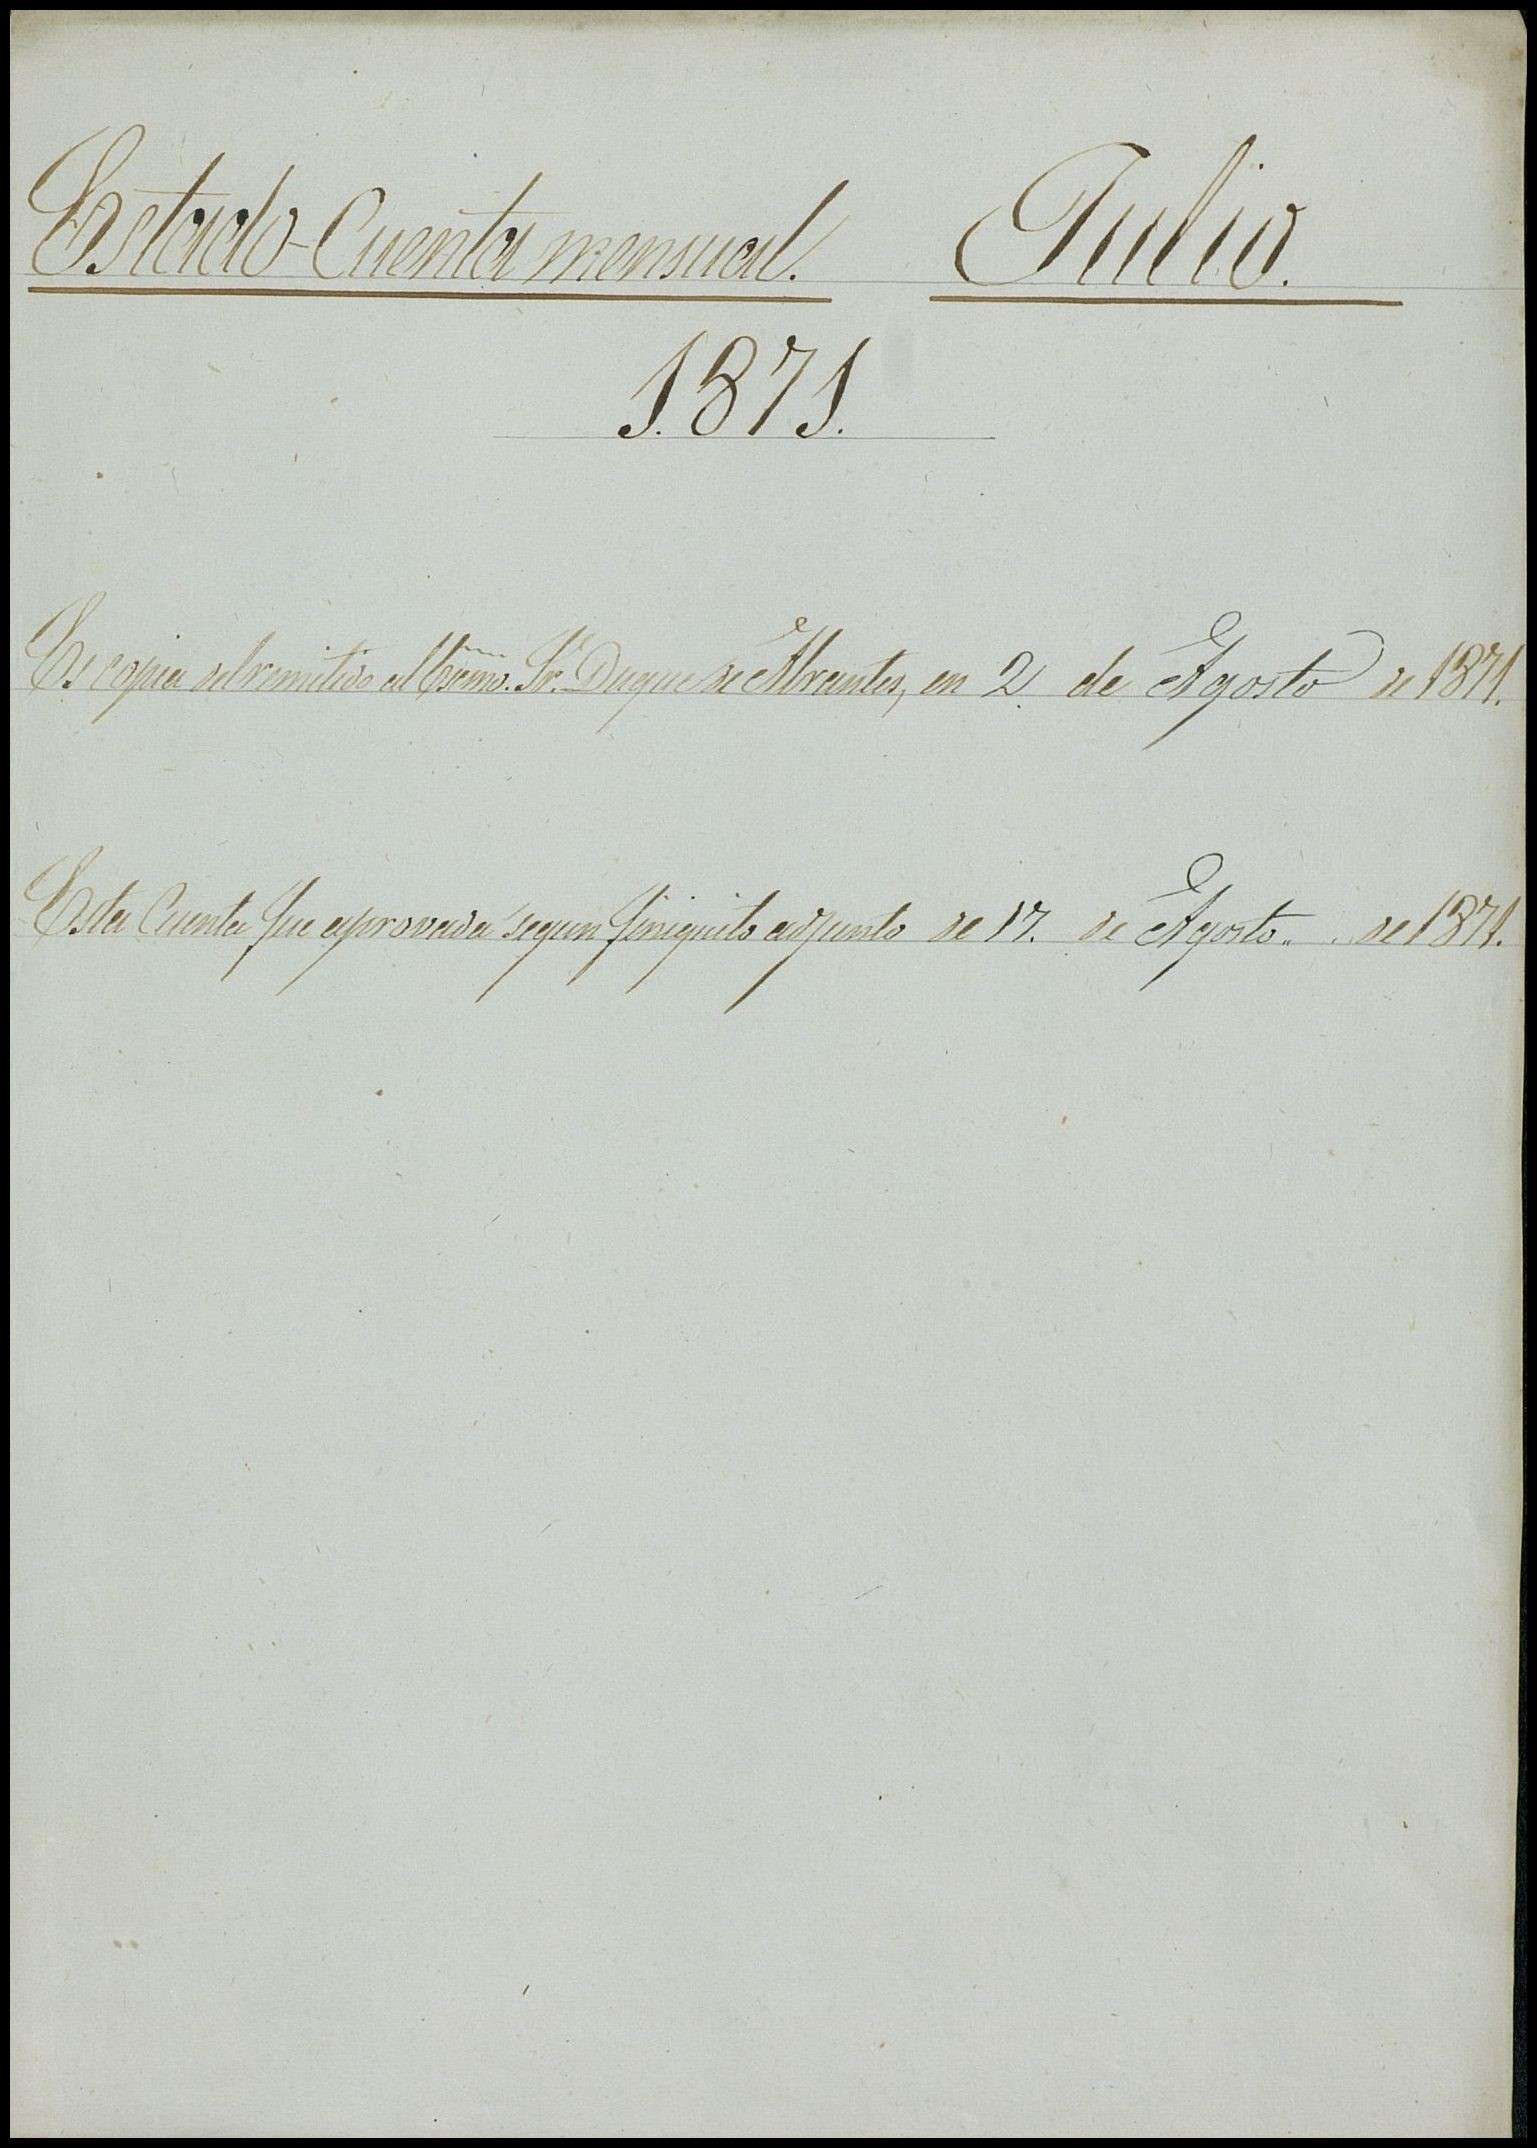 Estado-Cuenta mensual. Julio.
1.871.
Es copia del remitido al Excmo. Sr. Duque de Abrantes, en 2 de Agosto de 1871.
Esta Cuenta fue aprovada segun finiquito adjunto de 17. de Agosto.. . de 1871.